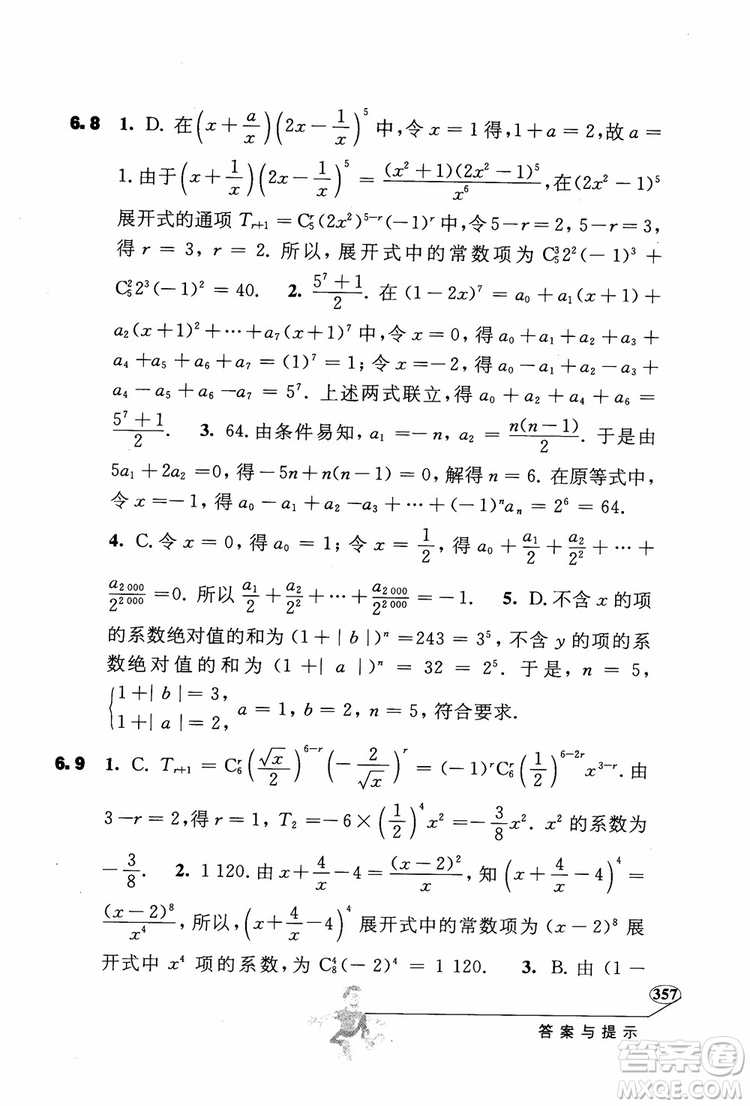 6.8 1. D. 在(x+a/x)(2x-1/x)^5 中,令 x=1 得,1+a=2,故 a=
1.由于(x+1/x)(2x-1/x)^5=(x^2+1)(2x^2-1)^5/x^6,在(2x^2-1)^5
展开式的通项 T_{r+1}=C_5^r(2x^2)^{5-r}(-1)^r 中,令 5-r=3, 5-r=2,
得 r=3, r=2. 所以,展开式中的常数项为 C_5^3 2^2(-1)^3+
C_5^2 2^3(-1)^2=40. 2. (5^7+1)/2. 在(1-2x)^7=a_0+a_1(x+1)+
a_2(x+1)^2+⋯+a_7(x+1)^7 中,令 x=0,得 a_0+a_1+a_2+a_3+
a_4+a_5+a_6+a_7=(1)^7=1. 令 x=-2,得 a_0-a_1+a_2-a_3+
a_4-a_5+a_6-a_7=5^7. 上述两式联立,得 a_0+a_2+a_4+a_6=
(5^7+1)/2. 3. 64.由条件易知,a_1=-n, a_2=n(n-1)/2. 于是由
5a_1+2a_2=0,得-5n+n(n-1)=0,解得 n=6. 在原等式中,
令 x=-1,得 a_0-a_1+a_2-a_3+⋯+(-1)^n a_n=2^6=64.
4. C.令 x=0,得 a_0=1;令 x=1/2,得 a_0+a_1/2+a_2/2^2+⋯+
a_{2 000}/2^{2 000}=0. 所以 a_1/2+a_2/2^2+⋯+a_{2 000}/2^{2 000}=-1. 5. D.不含 x 的项
的系数绝对值的和为(1+|b|)^n=243=3^5,不含 y 的项的系
数绝对值的和为(1+|a|)^n=32=2^5. 于是,n=5,
{1+|b|=3, 1+|a|=2, a=1, b=2, n=5,符合要求.
6.9 1. C. T_{r+1}=C_6^r(√x/2)^{6-r}(-2/√x)^r=(-1)^r C_6^r(1/2)^{6-2r}x^{3-r}. 由
3-r=2,得 r=1, T_2=-6×(1/2)^4 x^2=-3/8 x^2. x^2 的系数为
-3/8. 2. 1 120. 由 x+4/x-4=(x-2)^2/x,知(x+4/x-4)^4=
(x-2)^8/x^4,所以,(x+4/x-4)^4 展开式中的常数项为(x-2)^8 展
开式中 x^4 项的系数,为 C_8^4(-2)^4=1 120. 3. B. 由(1-
357
答案与提示
答案圈
MXQE.COM